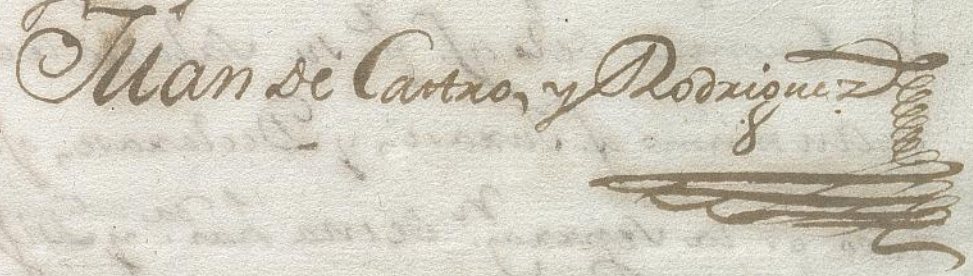 Juan de Castro, y Rodriguez